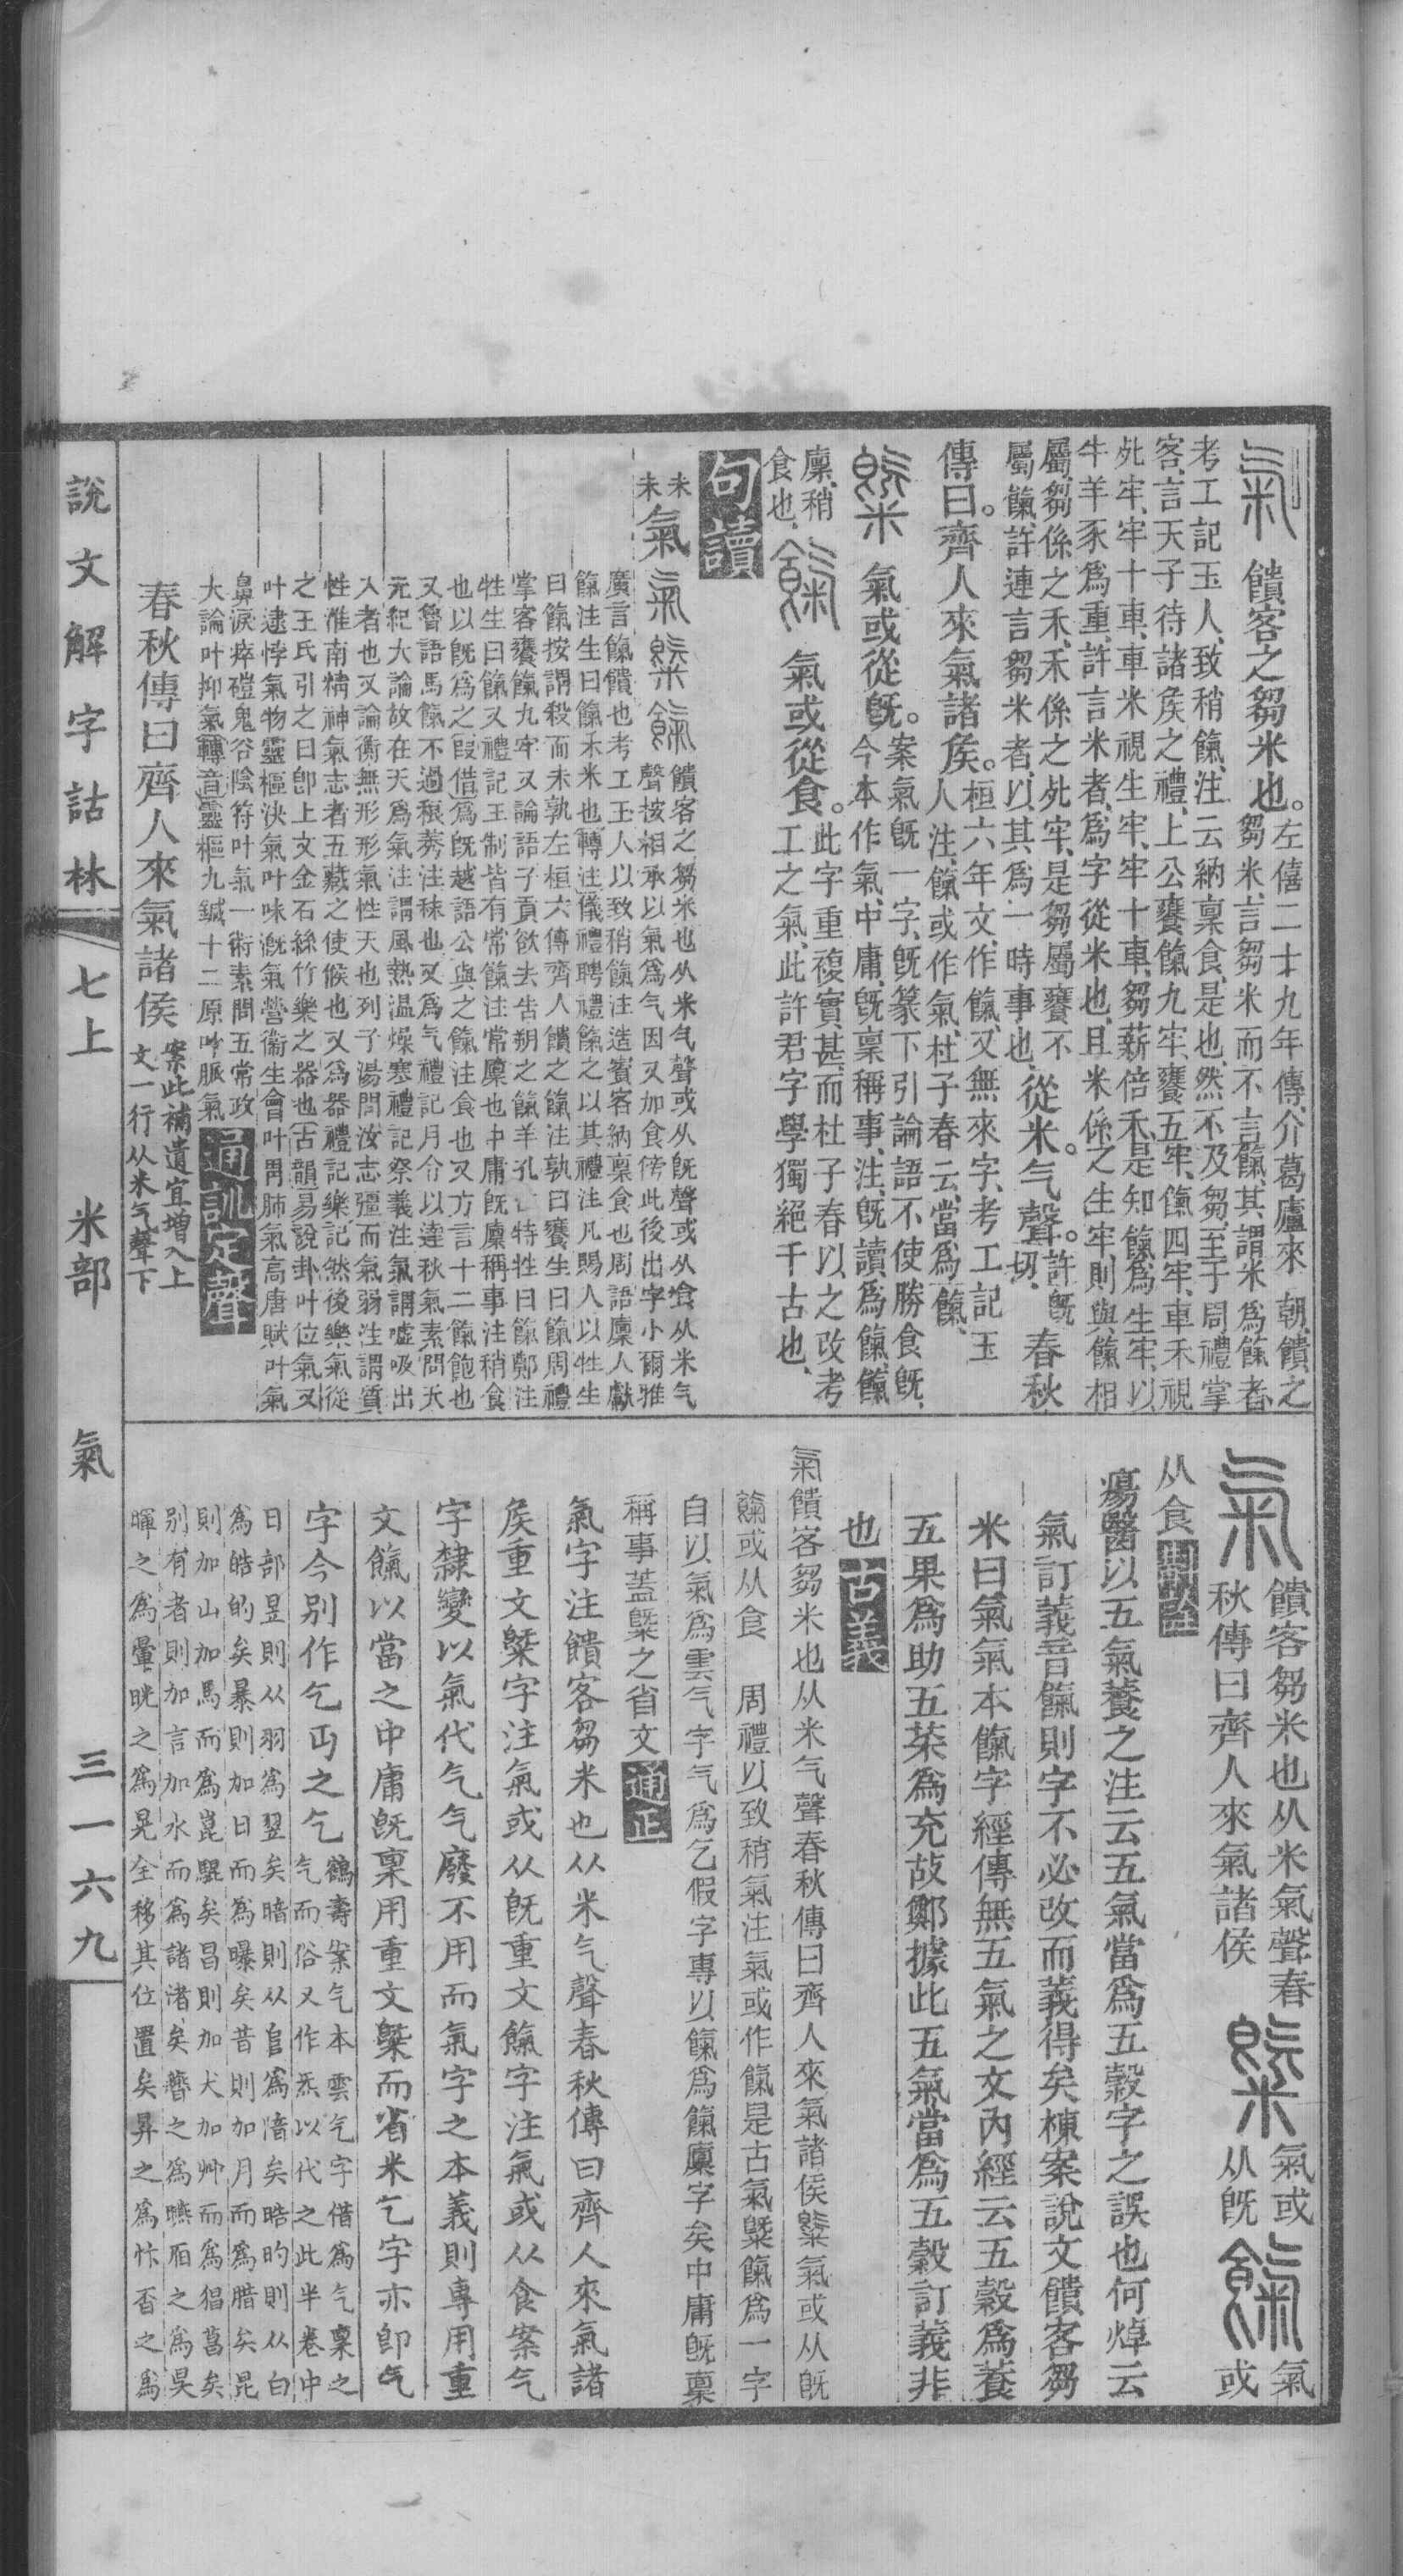 氣 饋客之芻米也。左僖二十九年傳、介葛廬來朝、饋之
芻米、言芻米而不言餼、其謂米爲餼者、
考工記玉人、致稍餼、注云納稟食、是也、然不及芻、至于周禮掌
客、言天子待諸矦之禮、上公饔餼九牢、饔五牢、餼四牢、車禾視
死牢、牢十車、車米視生牢、牢十車、芻薪倍禾、是知餼爲生牢、以
牛羊豕爲重、許言米者、爲字從米也、且米係之生牢、則與餼相
屬、芻係之禾、禾係之死牢、是芻屬饔不
屬餼、許連言芻米者、以其爲一時事也、從米。气聲。許旣切、春秋
傳曰。齊人來氣諸矦。桓六年文、作餼、又無來字、考工記玉
人注、餼或作氣、杜子春云、當爲餼、
𣫺 氣或從旣。案氣旣一字、旣篆下引論語不使勝食旣、
今本作氣、中庸、旣稟稱事、注、旣讀爲餼、餼
廩、稍
食也、
餼 氣或從食。此字重複實甚、而杜子春以之改考
工之氣、此許君字學獨絕千古也、
句讀
氣 氣𣫺餼 饋客之芻米也从米气聲或从旣聲或从食从米气
聲按相承以氣爲气因又加食傍此後出字小爾雅
廣言餼饋也考工玉人以致稍餼注造賓客納稟食也周語廩人獻
餼注生曰餼禾米也轉注儀禮聘禮餼之以其禮注凡賜人以牲生
曰餼按謂殺而未孰左桓六傳齊人饋之餼注孰曰饔生曰餼周禮
掌客饔餼九牢又論語子貢欲去告朔之餼羊孔 特牲曰餼鄭注
牲生曰餼又禮記王制皆有常餼注常廩也中庸旣廩稱事注稍食
也以旣爲之叚借爲旣越語公與之餼注食也又方言十二餼飽也
又魯語馬餼不過稂莠注秣也又爲气禮記月令以達秋氣素問天
元紀大論故在天爲氣注謂風熱温燥寒禮記祭義注氣謂噓吸出
入者也又論衡無形形氣性天也列子湯問汝志彊而氣弱注謂質
性淮南精神氣志者五藏之使候也又爲器禮記樂記然後樂氣從
之王氏引之曰卽上文金石絲竹樂之器也古韻易說卦叶位氣又
叶逮悖氣物靈樞決氣叶味溉氣營衞生會叶胃肺氣高唐賦叶氣
鼻淚瘁磑鬼谷陰符叶氣一術素問五常政
大論叶抑氣轉音靈樞九鍼十二原吟脈氣 通訓定聲
春秋傳曰齊人來氣諸侯 案此補遺宜增入上
文一行从米气聲下
氣 饋客芻米也从米氣聲春
秋傳曰齊人來氣諸侯 𣫺 氣或
从旣 餼 氣或
从食 斠詮
瘍醫以五氣養之注云五氣當爲五穀字之誤也何焯云
氣訂義音餼則字不必改而義得矣棟案說文饋客芻
米曰氣氣本餼字經傳無五氣之文內經云五穀爲養
五果爲助五菜爲充故鄭據此五氣當爲五穀訂義非
也 古義
氣饋客芻米也从米气聲春秋傳曰齊人來氣諸侯𣫺氣或从旣
餼或从食 周禮以致稍氣注氣或作餼是古氣𣫺餼爲一字
自以氣爲雲气字气爲乞假字專以餼爲餼廩字矣中庸旣稟
稱事蓋𣫺之省文 通正
氣字注饋客芻米也从米气聲春秋傳曰齊人來氣諸
矦重文𣫺字注氣或从旣重文餼字注氣或从食案气
字隸變以氣代气气廢不用而氣字之本義則專用重
文餼以當之中庸旣稟用重文𣫺而省米乞字亦卽气
字今別作乞丏之乞 鶴壽案气本雲气字借爲气稟之
气而俗又作炁以代之此半卷中
日部昱則从羽爲翌矣暗則从音爲㖤矣晧旳則从白
爲皓的矣暴則加日而爲曝矣昔則加月而爲腊矣昆
則加山加馬而爲崑騉矣昌則加犬加艸而爲猖菖矣
別有者則加言加水而爲諸渚矣 之爲 之爲昊
暉之爲暈晄之爲晃全移其位置矣昇之爲忭杳之爲
說文解字詁林 七上 米部 氣 三一六九